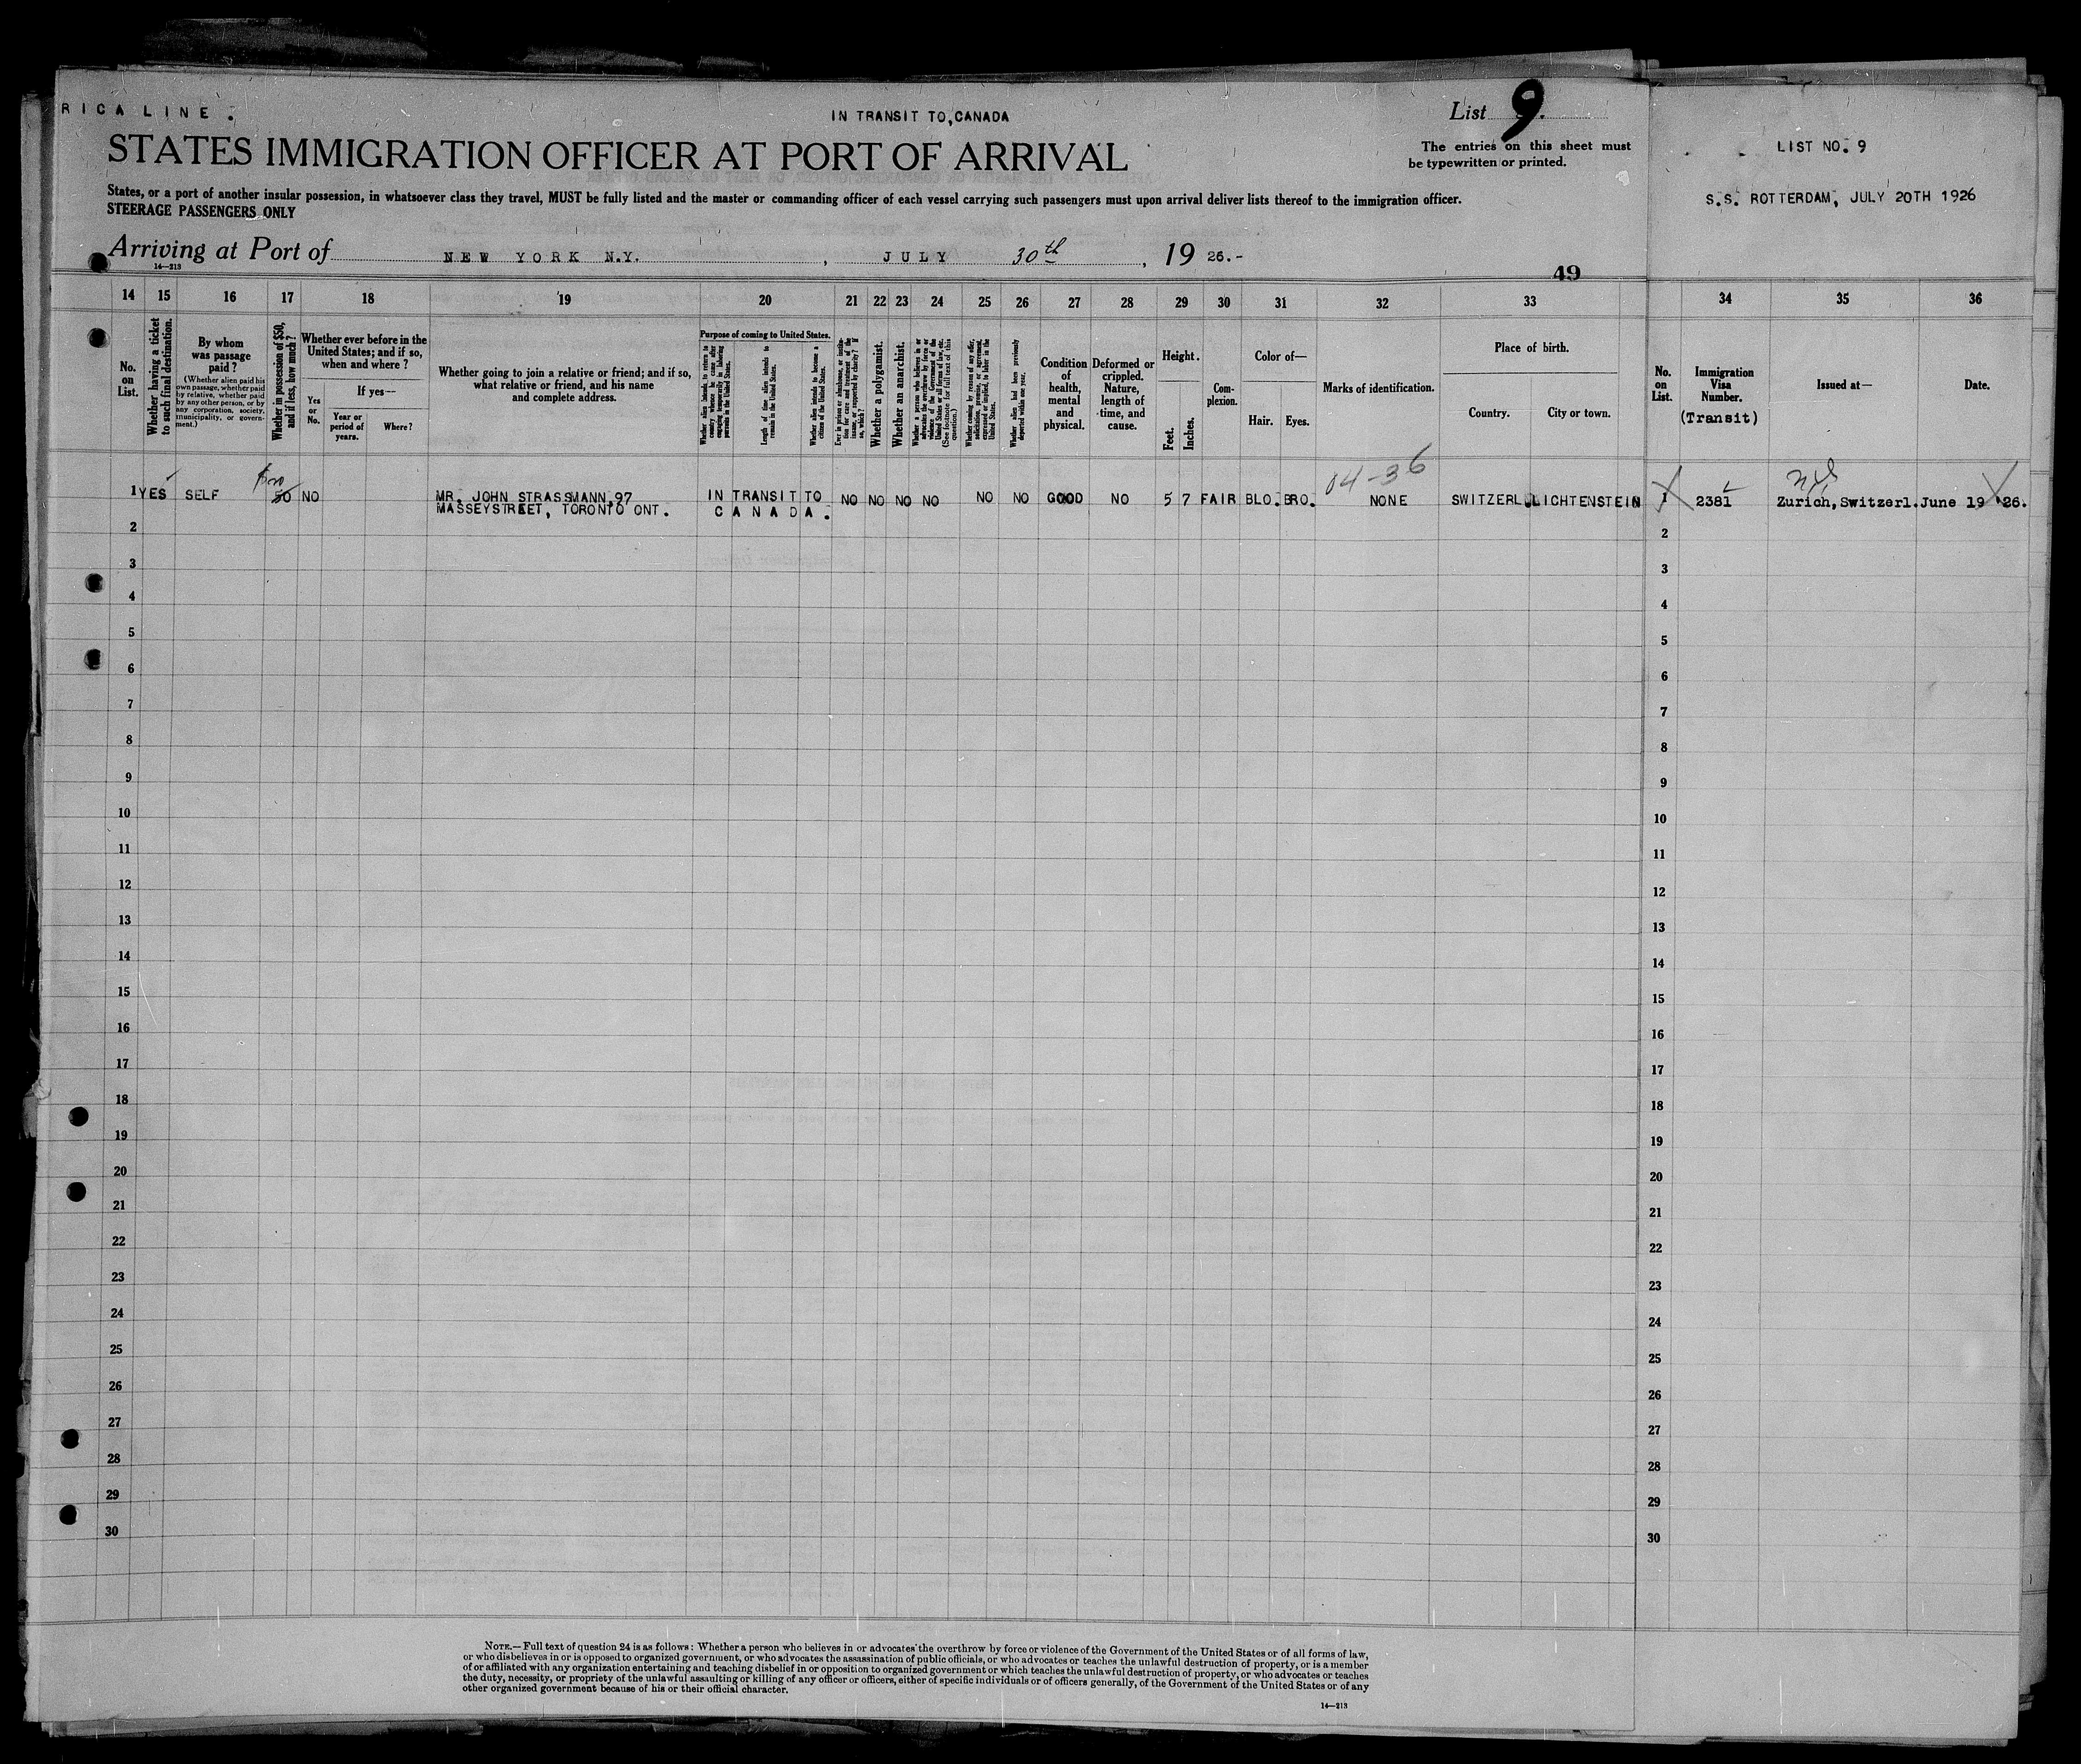 RICA LINE.
IN TRANSIT TO, CANADA
List 9.
STATES IMMIGRATION OFFICER AT PORT OF ARRIVAL
The entries on this sheet must
be typewritten or printed.
LIST NO. 9
States, or a port of another insular possession, in whatsoever class they travel, MUST be fully listed and the master or commanding officer of each vessel carrying such passengers must upon arrival deliver lists thereof to the immigration officer.
STEERAGE PASSENGERS ONLY
S.S. ROTTERDAM, JULY 20TH 1926
Arriving at Port of NEW YORK N.Y. , JULY 30th , 19 26.-
14—213
49
14 15 16 17 18 19 20 21 22 23 24 25 26 27 28 29 30 31 32 33 34 35 36
No. on List.
Whether having a ticket to such final destination.
By whom was passage paid?
(Whether alien paid his own passage, whether paid by relative, whether paid by any other person, or by any corporation, society, municipality, or government.)
Whether in possession of $50, and if less, how much?
Whether ever before in the United States; and if so, when and where?
Yes or No.
If yes—
Year or period of years.
Where?
Whether going to join a relative or friend; and if so, what relative or friend, and his name and complete address.
Purpose of coming to United States.
Whether alien intends to return to country whence he came after engaging temporarily in laboring pursuits in the United States.
Length of time alien intends to remain in the United States.
Whether alien intends to become a citizen of the United States.
Ever in prison or almshouse, or institution for care and treatment of the insane, or supported by charity? If so, which?
Whether a polygamist.
Whether an anarchist.
Whether a person who believes in or advocates the overthrow by force or violence of the Government of the United States or all forms of law, etc. (See footnote for full text of this question.)
Whether coming by reason of any offer, solicitation, promise, or agreement, expressed or implied, to labor in the United States.
Whether alien had been previously deported within one year.
Condition of health, mental and physical.
Deformed or crippled. Nature, length of time, and cause.
Height.
Feet.
Inches.
Complexion.
Color of—
Hair.
Eyes.
Marks of identification.
Place of birth.
Country.
City or town.
No. on List.
Immigration Visa Number.
(Transit)
Issued at—
Date.
04-36
1 YES SELF 50 NO MR. JOHN STRASSMANN, 97 IN TRANSIT TO NO NO NO NO NO NO GOOD NO 5 7 FAIR BLO. BRO. NONE SWITZERL. LICHTENSTEIN 1 2381 Zurich, Switzerl. June 19 '26.
MASSEYSTREET, TORONTO ONT. CANADA.
2 2
3 3
4 4
5 5
6 6
7 7
8 8
9 9
10 10
11 11
12 12
13 13
14 14
15 15
16 16
17 17
18 18
19 19
20 20
21 21
22 22
23 23
24 24
25 25
26 26
27 27
28 28
29 29
30 30
NOTE.—Full text of question 24 is as follows: Whether a person who believes in or advocates the overthrow by force or violence of the Government of the United States or of all forms of law,
or who disbelieves in or is opposed to organized government, or who advocates the assassination of public officials, or who advocates or teaches the unlawful destruction of property, or is a member
of or affiliated with any organization entertaining and teaching disbelief in or opposition to organized government or which teaches the unlawful destruction of property, or who advocates or teaches
the duty, necessity, or propriety of the unlawful assaulting or killing of any officer or officers, either of specific individuals or of officers generally, of the Government of the United States or of any
other organized government because of his or their official character.
14—213